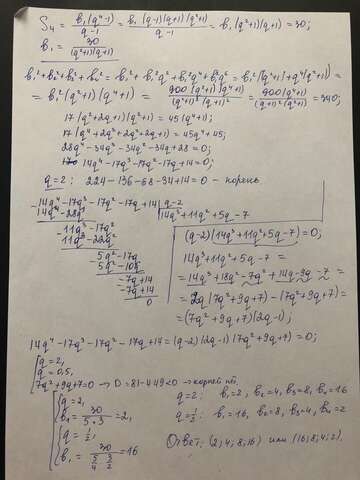 S₄ = b₁(q⁴-1)/(q-1) = b₁(q-1)(q+1)(q²+1)/(q-1) = b₁(q²+1)(q+1) = 30;
b₁ = 30/((q²+1)(q+1))
b₁²+b₂²+b₃²+b₄² = b₁²+b₁²q²+b₁²q⁴+b₁²q⁶ = b₁²(q²+1+q⁴(q²+1)) =
= b₁²(q²+1)(q⁴+1) = 900(q²+1)(q⁴+1)/((q²+1)²(q+1)²) = 900(q⁴+1)/((q+1)²(q²+1)) = 340;
17(q²+2q+1)(q²+1) = 45(q⁴+1);
17(q⁴+2q³+2q²+2q+1) = 45q⁴+45;
28q⁴-34q³-34q²-34q+28=0;
14q⁴-17q³-17q²-17q+14=0;
q=2: 224-136-68-34+14=0 - корень
14q⁴-17q³-17q²-17q+14 | q-2
14q⁴-28q³ | 14q³+11q²+5q-7
11q³-17q²
11q³-22q²
5q²-17q
5q²-10q
-7q+14
-7q+14
0
(q-2)(14q³+11q²+5q-7)=0;
14q³+11q²+5q-7 =
= 14q³+18q²-7q²+14q-9q-7 =
= 2q(7q²+9q+7)-(7q²+9q+7) =
= (7q²+9q+7)(2q-1);
14q⁴-17q³-17q²-17q+14=(q-2)(2q-1)(7q²+9q+7)=0;
q=2,
q=0,5,
7q²+9q+7=0 → D=81-4·49<0 → корней нет.
q=2,
b₁ = 30/(5·3) = 2,
q = 1/2,
b₁ = 30/(5/4 · 3/2) = 16
q=2: b₁=2, b₂=4, b₃=8, b₄=16
q=1/2: b₁=16, b₂=8, b₃=4, b₄=2
Ответ: (2; 4; 8; 16) или (16; 8; 4; 2).